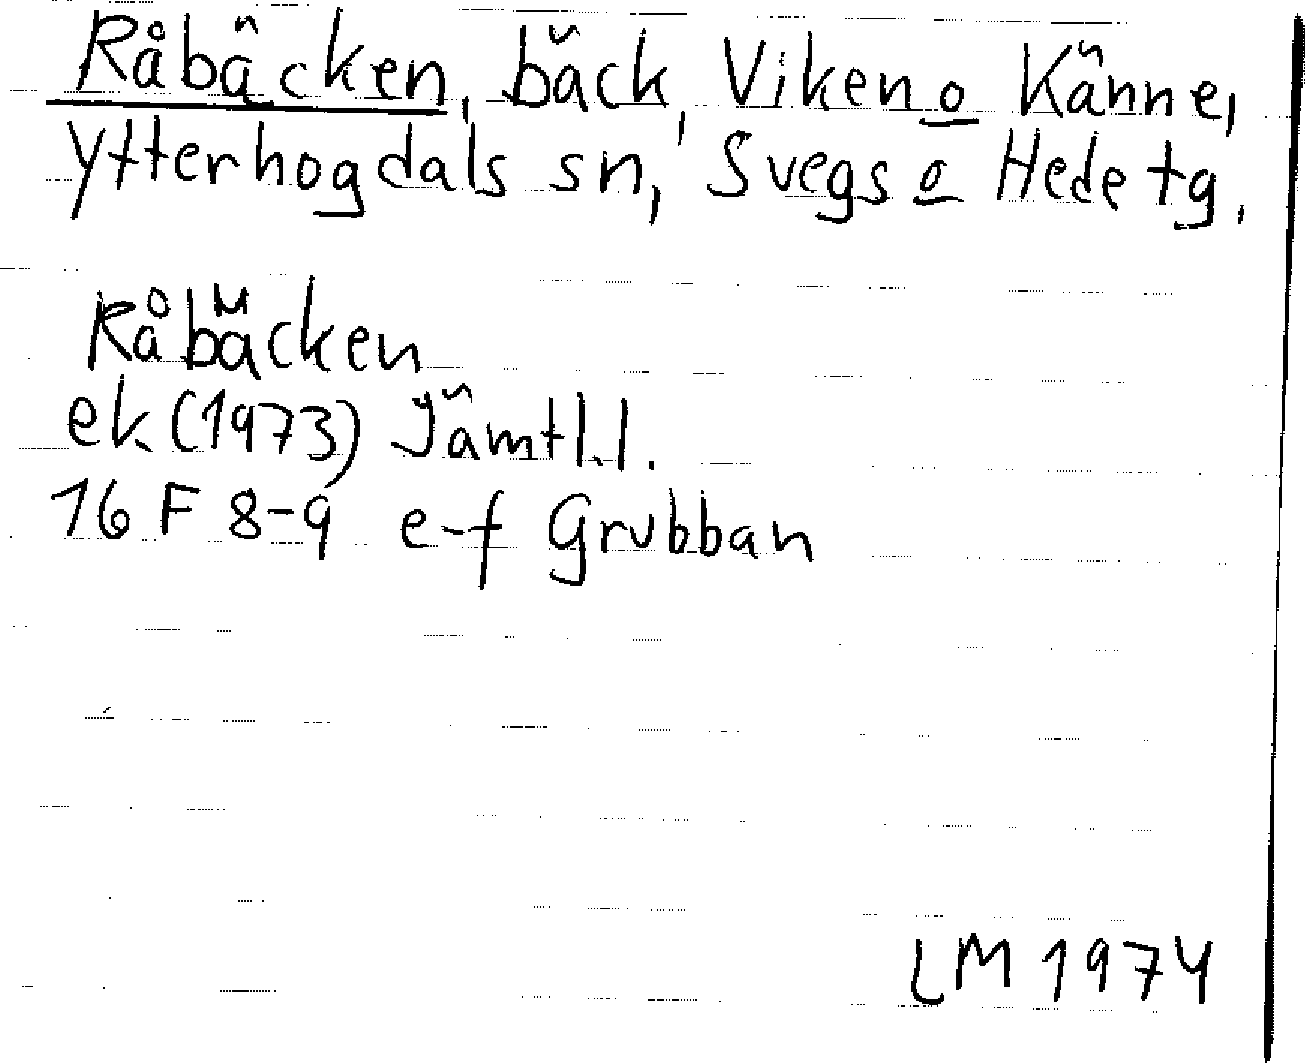 Råbäcken, bäck, Viken o Känne,
Ytterhogdals sn, Svegs o Hede tg.
Råbäcken
ek (1973) Jämtl.l.
16 F 8-9 e-f Grubban
LM 1974